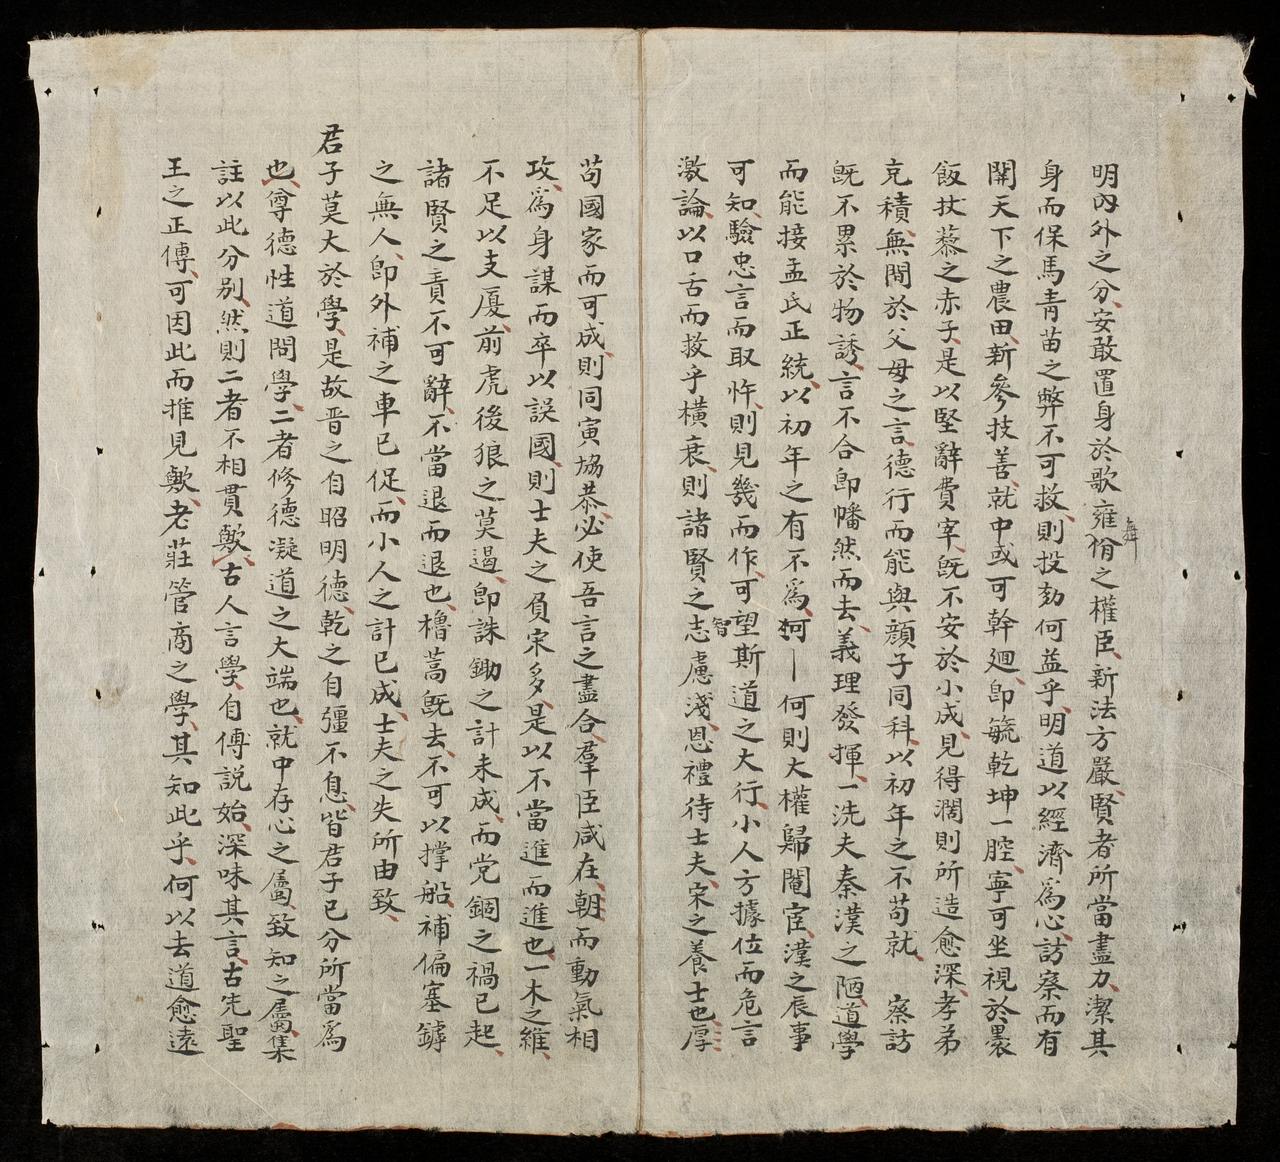 明內外之分安敢置身於歌雍佾之權臣新法方嚴賢者所當盡力潔其
舞
身而保馬青苗之弊不可救則投劾何益乎明道以經濟爲心訪察而有
關天下之農田新參技善就中或可幹廻卽毓乾坤一腔寧可坐視於裹
飯扶藜之赤子是以堅辭費宰旣不安於小成見得濶則所造愈深孝弟
克積無間於父母之言德行而能與顔子同科以初年之不苟就 察訪
旣不累於物誘言不合卽幡然而去義理發揮一洗夫秦漢之陋道學
而能接孟氏正統以初年之有不爲 何則大權歸閹宦漢之辰事
可知驗忠言而取忤則見幾而作可望斯道之大行小人方據位而危言
智
激論以口舌而救乎橫衰則諸賢之志慮淺恩禮待士夫宋之養士也厚
苟國家而可成則同寅協恭必使吾言之盡合羣臣咸在朝而動氣相
攻爲身謀而卒以誤國則士夫之負宋多是以不當進而進也一木之維
不足以支廈前虎後狼之莫遏卽誅鋤之計未成而党錮之禍已起
諸賢之責不可辭不當退而退也櫓蒿旣去不可以撑船補偏塞罅
之無人卽外補之車已促而小人之計已成士夫之失所由致
君子莫大於學是故晋之自昭明德乾之自彊不息皆君子已分所當爲
也尊德性道問學二者修德凝道之大端也就中存心之屬致知之屬集
註以此分别然則二者不相貫歟古人言學自傅説始深味其言古先聖
王之正傳可因此而推見歟老莊管商之學其知此乎何以去道愈遠